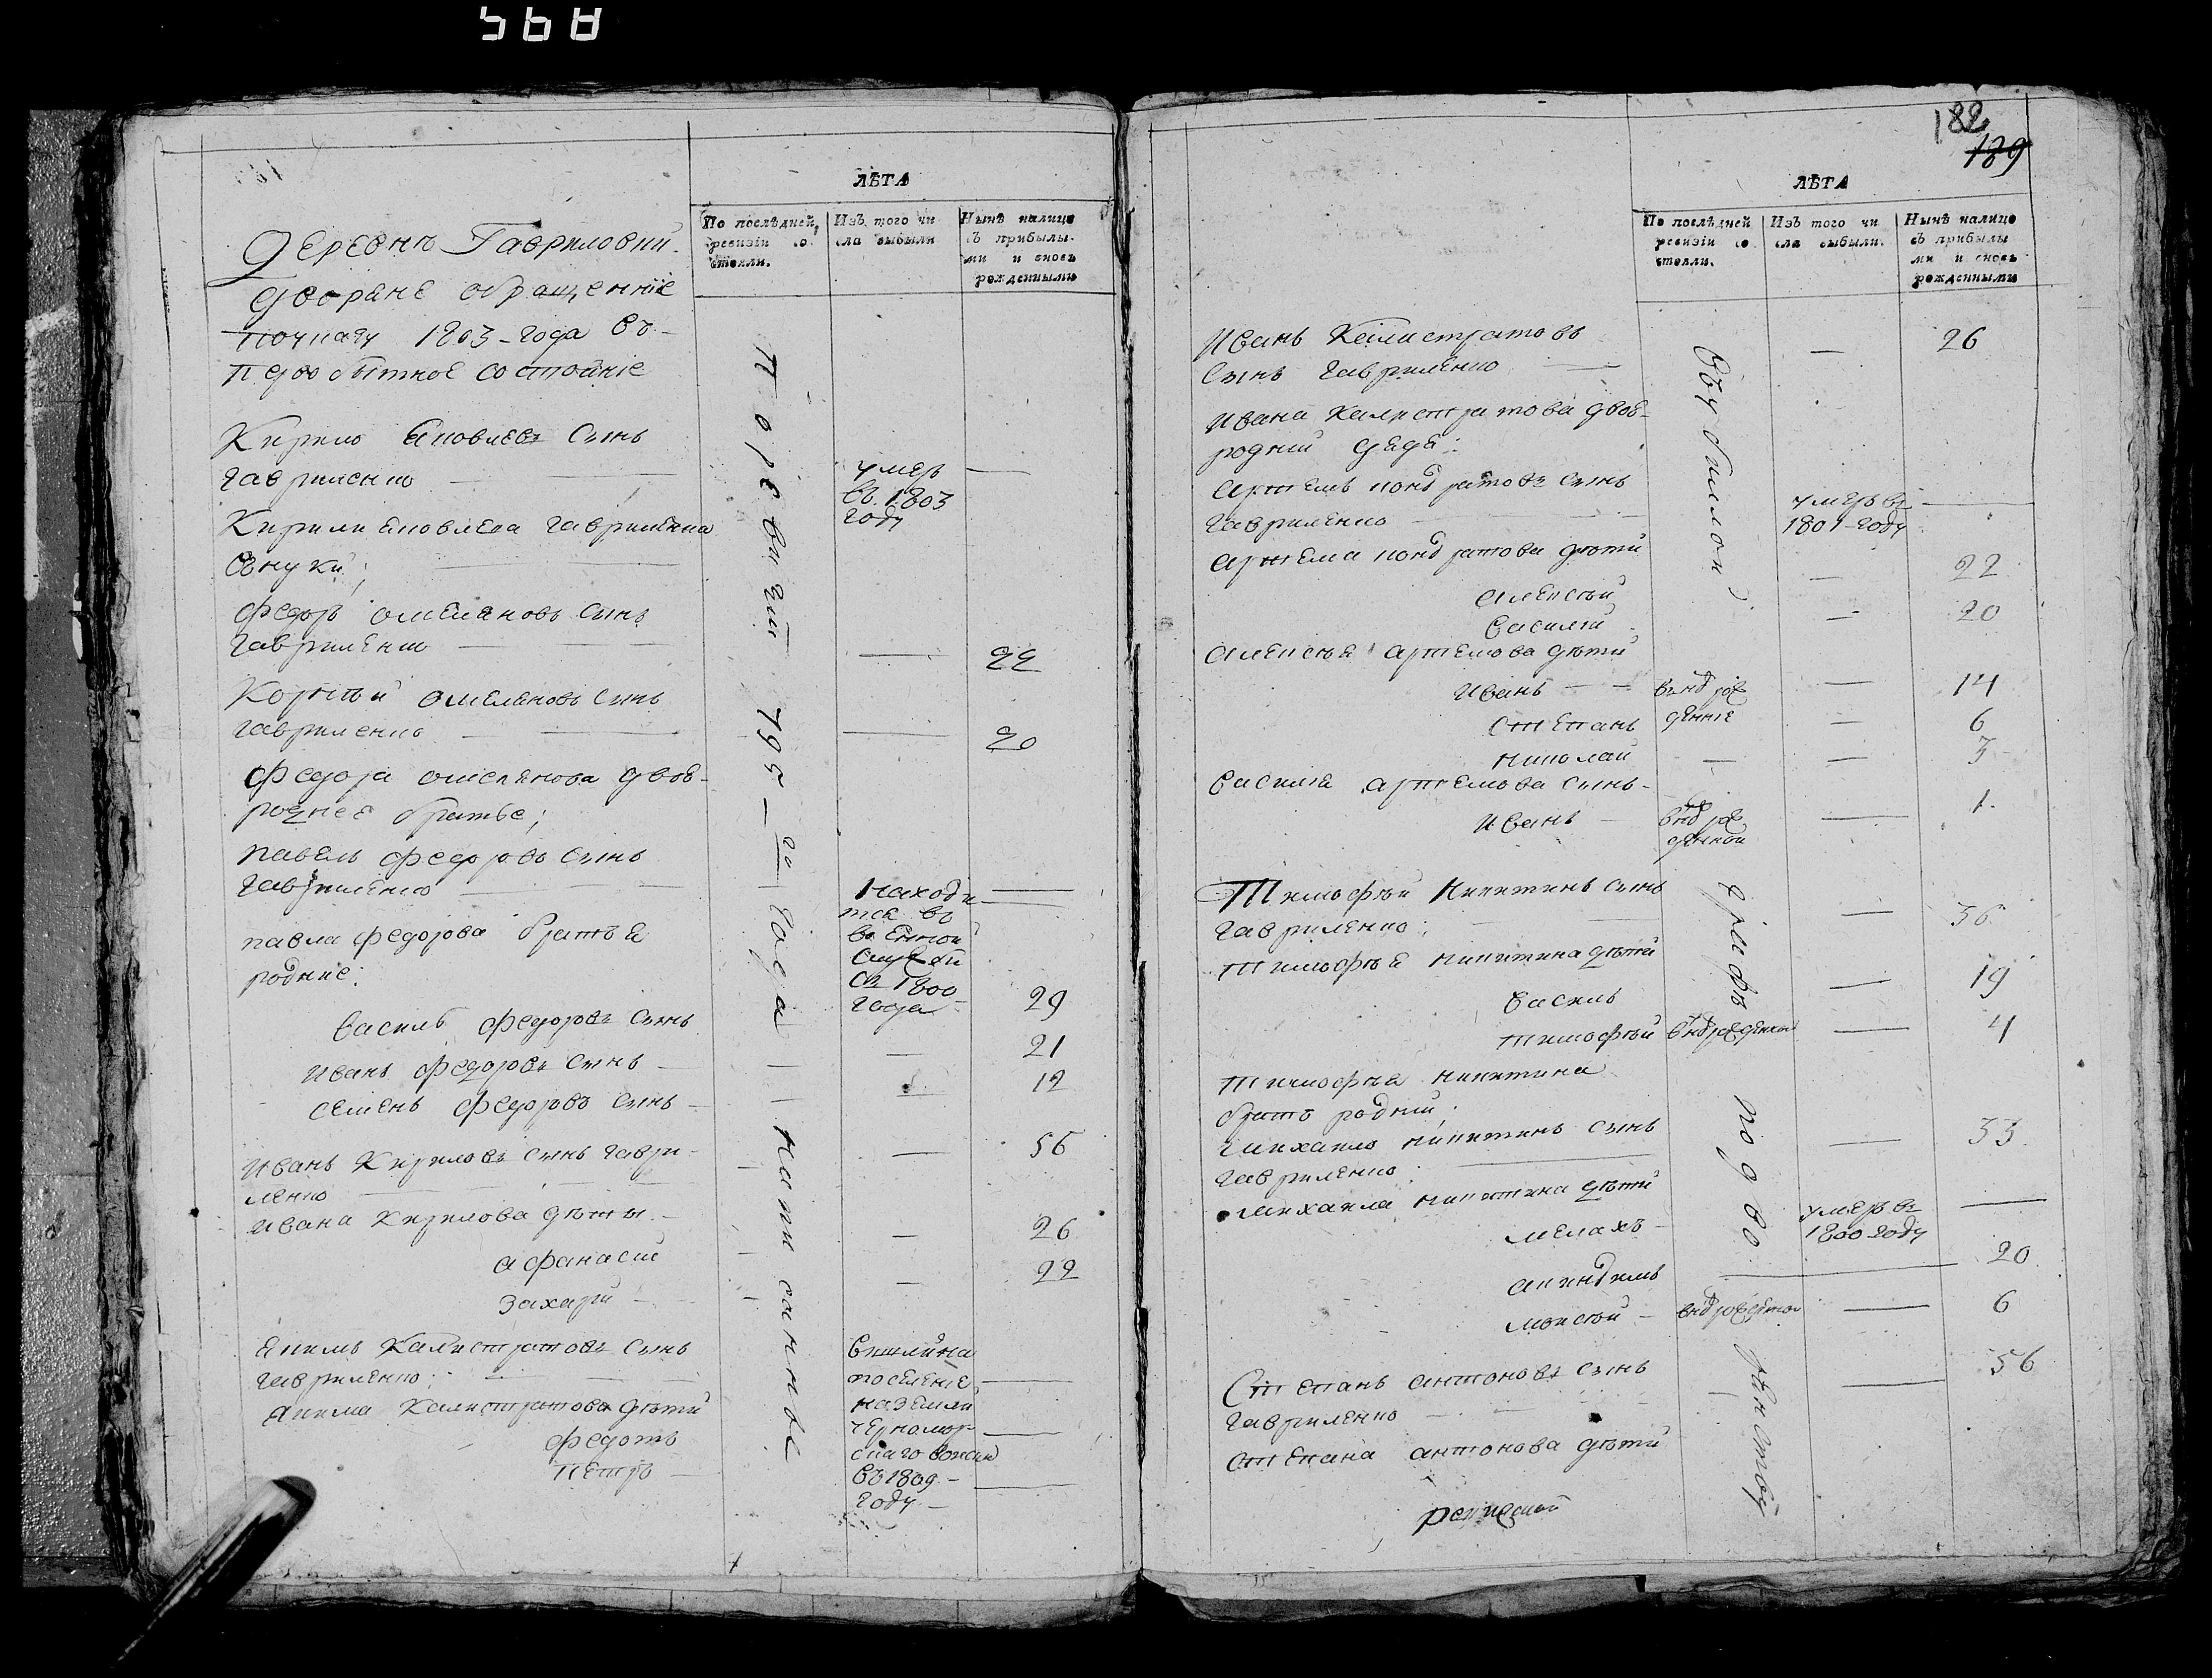 568
ЛѢТА
По послѣдней ревизіи состояли.
Изъ того числа выбыли
Нынѣ налицо съ прибылыми и вновь рожденными
Деревнѣ Гавриловки
дворяне обращенніе
1803-года въ
первобытное состояніе
Кирило Яковлевъ Сынъ
Гавриленко
умеръ
въ 1803
году
Кирили Яковлева Гавриленка
Внуки;
Федоръ Омеляновъ Сынъ
Гавриленко
22
Корнѣй Омеляновъ Сынъ
Гавриленко
20
Федора Омелянова двою-
роднее братье;
Павелъ Федоровъ Сынъ
Гавриленко
Находи
тся въ
военной
службѣ
съ 1800
года
Павла Федорова братья
родніе:
Василь Федоровъ Сынъ
29
Иванъ Федоровъ Сынъ
21
Семенъ Федоровъ Сынъ
12
Иванъ Кириловъ Сынъ Гаври-
ленко
56
Ивана Кирилова дѣты
Афанасій
26
Захарій
22
Якимъ Калистратовъ Сынъ
Гавриленко;
Якима Калистратова дѣти
Федотъ
Петръ
Вишли на
поселеніе
на земли
Черномор-
скаго войска
въ 1809-
году
По ревизіи 795-го года написанніе
182
189
ЛѢТА
По послѣдней ревизіи состояли.
Изъ того числа выбыли.
Нынѣ налицо съ прибылыми и вновь рожденными
Иванъ Калистратовъ
Сынъ Гавриленко
26
Ивана Калистратова двою-
родній дядя:
Артемъ Кондратовъ Сынъ
Гавриленко
умеръ въ
1801-году
Артема Кондратова дѣти
Алексѣй
22
Василій
20
Алексѣя Артемова дѣти
Иванъ
14
Степанъ
6
Николай
3
Василія Артемова Сынъ
Иванъ
1
Тимофѣй Никитинъ Сынъ
Гавриленко;
36
Тимофѣя Никитина дѣти
Василь
19
Тимофѣй
4
Тимофѣя Никитина
братъ родній;
Михайло Никитинъ Сынъ
Гавриленко
33
Михаила Никитина дѣти
Мелахъ
умеръ въ
1800 году
Акиндимъ
20
Моисѣй
6
Степанъ Антоновъ Сынъ
Гавриленко
56
Степана Антонова дѣти